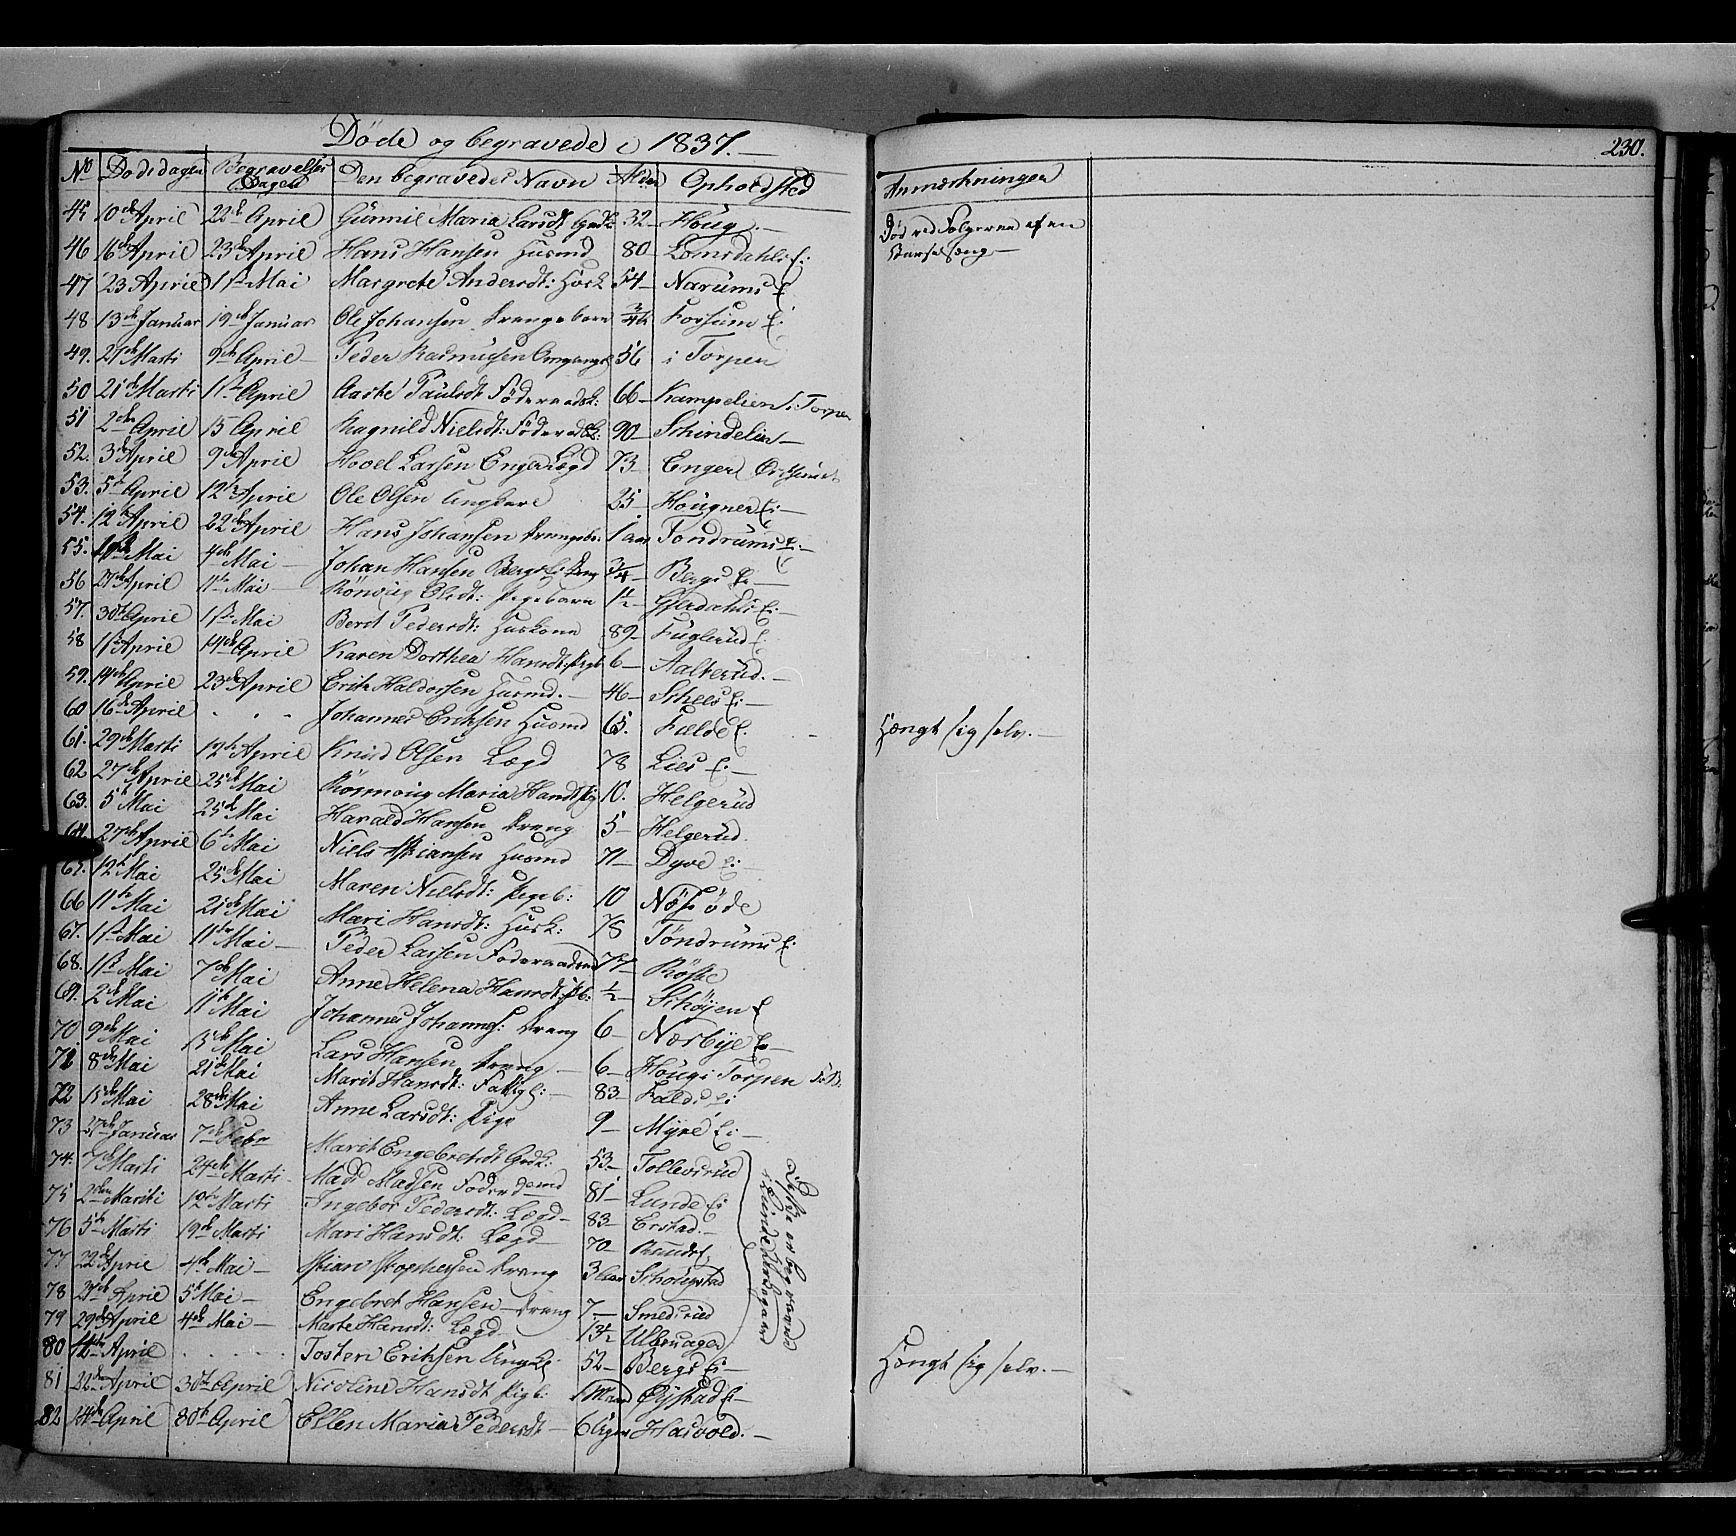 Døde og begravede i 1837.
230.
No Dødsdagen Begravelses Dagen Den begravedes Navn Alder Opholdsted Anmærkninger
45 10de April 22de April Gunnil Maria Larsdt Gaardk. 32 Houg. Død ved Følgerne af en
46 16de April 23de April Hans Hansen Husmd 80 Lomsdahls E: Barselseng
47 23 April 11te Mai Margrete Andersdt: Husk 54 Narums E.
48 13de Januar 19de Januar Ole Johansen Drengebarn Fossum E:
49. 21de Marti 9de April Peder Rasmusen 56 i Torpen
50 21de Marti 1ste April Aaste Paulsdt Føderaadsk: 66 Kampelien i Torpen
51 2den April 15 April Ragnild Nielsdt: Føderadsk: 90 Schindelien
52. 3de April 9de April Hovel Larsen Enger Lægd 73 Enger
53. 5te April 12te April Ole Olsen Ungkarl 25 Hougner E:
54. 12te April 22de April Hans Johansen Drengeb: 1 aar Tondrums E:
55. Mai 4de Mai Johan Hansen Bergs E: Dreng 3/4 Bergs E
56 27de April 11te Mai Rønnoug Olsdt: Pigebarn 1½ Gjerdahls E:
57. 30te April 11te Mai Berit Pedersdt: Huskone 89 Fuglerud E.
58 11te April 14de April Karen Dorthea Hansdt: Pigb 6 Aalterud.
59. 14de April 23de April Erik Haldorsen Husmd. 46 Schees E:
60 16de April . . Johannes Eriksen Husmd 65. Fælde E. Hængt sig selv.
61. 29de Marti 19de April Knud Olsen Lægd 78 Lies E:
62 27de April 25de Mai Rønnoug Maria Hansdt Pig 10. Helgerud
63. 5te Mai 25de Mai Harald Hansen Dreng 5 Helgerud.
64. 27de April 6te Mai Niels Kristiansen Husmd 71 Dyve E:
65. 12te Mai 25de Mai Maren Nielsdt: Pigeb: 10 Nøssøde
66 11te Mai 21de Mai Mari Hansdt: Husk: 78 Tøndrums E:
67. 11te Mai 11te Mai Peder Larsen Føderaadsmd 77 Røste
68. 1ste Mai 7de Mai Anne Helena Hansdt: Pb: ½ Schøyen E
69. 2de Mai 11te Mai Johannes Johanness: Dreng 6 Nærbye E:
70 9de Mai 15de Mai Lars Hansen Dreng 6 Houg i Torpen
71 8de Mai 21de Mai Marit Hansdt: Fattigl: 83 Fælds E:
72 15de Mai 28de Mai Anne Larsdt: Pige 9 Myre E:
73 27de Januar 7de Febr Marit Engebretsdt Gaardk: 53 Tollevsrud
74. 7de Marti 24de Marti Mads Madsen Føderadsmd 81 Lunde E:
75 2den Marti 12te Marti Ingebor Pedersdt: Lægd 83 Erstad.
76 5te Marti 19de Marti Mari Hansdt: Lægd 70
77 22de April 4de Mai Kristian Kristophersen Dreng 3 Aar Schougstad
78 27de April 5te Mai Engebret Hansen Dreng 7 Smedsrud
79 29de April 4de Mai Marte Hansdt: Lægd 73½ Ulsnager
Disse er begravede
i Lunde Kirkegaard
80 14de April . . . . Tosten Eriksen Ungk: 52 Bergs E: Hængt sig selv.
81 22de April 30te April Nicoline Hansdt Pigb: 1 Maaned Øystad E:
82 14de April 30te April Ellen Maria Pedersdt 6 Uger Haivold.